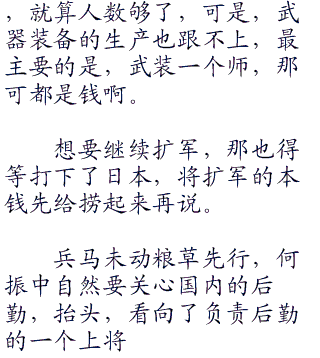 ，就算人数够了，可是，武
器装备的生产也跟不上，最
主要的是，武装一个师，那
可都是钱啊。
想要继续扩军，那也得
等打下了日本，将扩军的本
钱先给捞起来再说。
兵马未动粮草先行，何
振中自然要关心国内的后
勤，抬头，看向了负责后勤
的一个上将